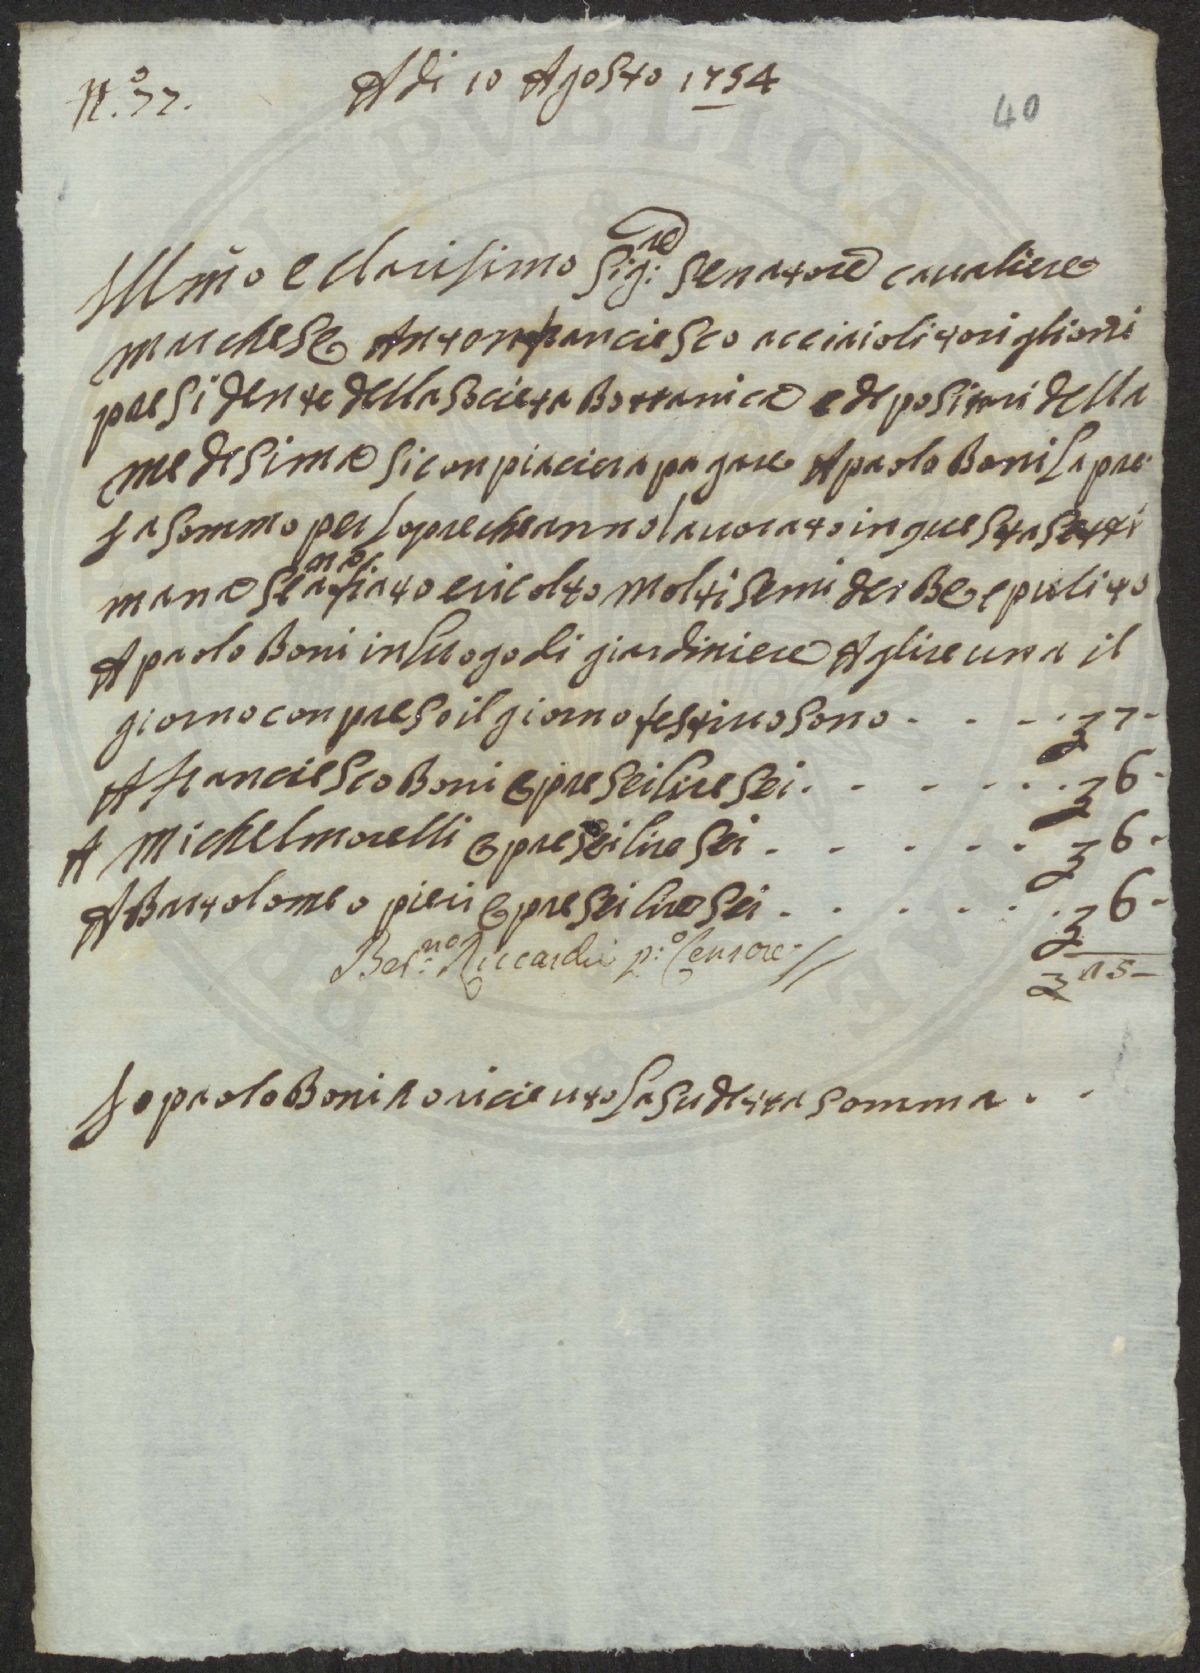 N.º 77.
A di 10 Agosto 1754
40
Illmo e Clarisimo Sig:re Senatore Caualiere
marchese Antonfranciesco acciaioli toriglioni
presidente della Societa Bottanica e depositari della
medesima si conpiaciera pagare A paolo Boni la pre
sa sommo per lopre che anno lauorato in questa setti
mana si e anafiato e ricolto molti semi derbe e pulito
A paolo Boni in luogo di giardiniere A glire una il
giorno conpreso il giorno festiuo sono - - - £ 7 -
A franciesco Boni e pre sei lire sei - - - £ 6 -
A Michel morelli e pre sei lire sei - - - £ 6 -
A Bartolomeo pieri e pre sei lire sei - - - £ 6 -
Ber:no Riccardi p:o Censore //
£ 25 -
Io paolo Boni o riceuto la sudetta somma - -